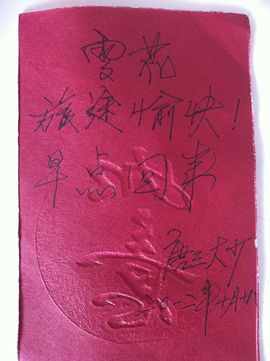 雪花
旅途愉快!
早点回来
唐三大少
二〇一二年十月廿八